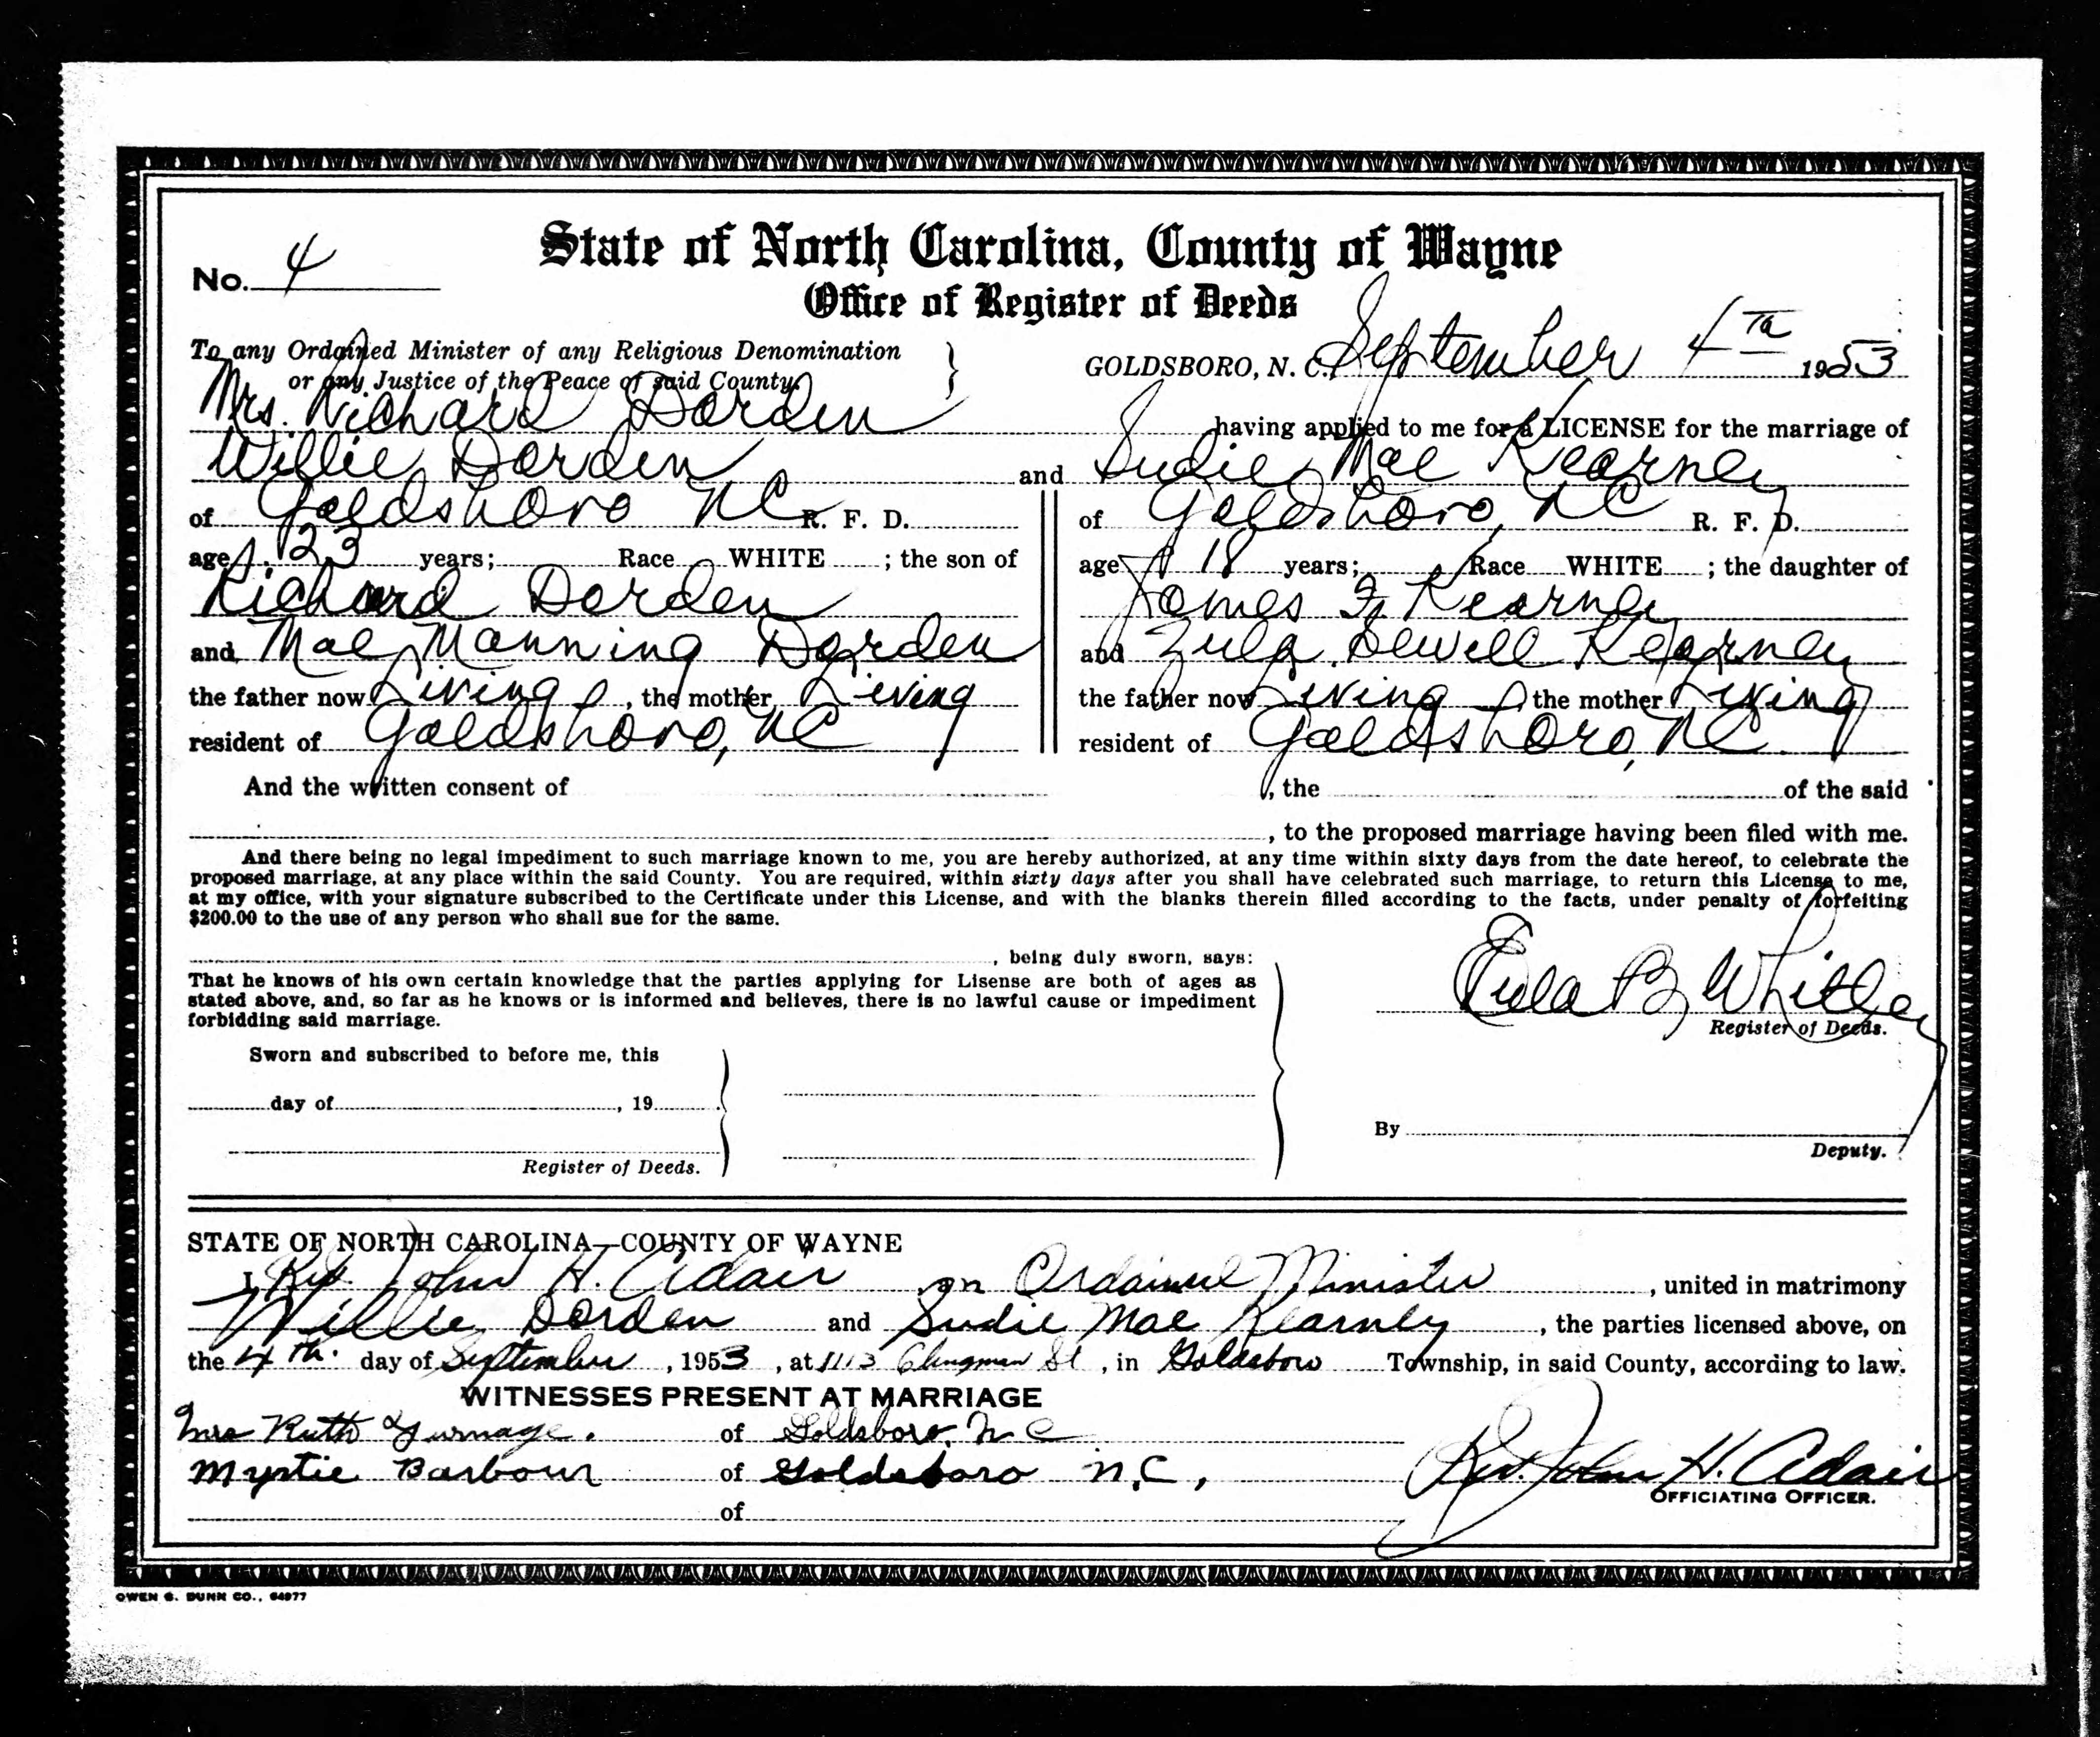 No. 4
State of North Carolina, County of Wayne
Office of Register of Deeds
To any Ordained Minister of any Religious Denomination
or any Justice of the Peace of said County,
GOLDSBORO, N. C. September 4 Th 1953
Mrs. Richard Darden having applied to me for a LICENSE for the marriage of
Willie Darden and Sudie Mae Kearney
of Goldsboro NC R. F. D.
age 23 years; Race WHITE ; the son of
Richard Darden
and Mae Manning Darden
the father now Living , the mother Living
resident of Goldsboro, NC
of Goldsboro, NC R. F. D.
age 18 years; Race WHITE ; the daughter of
James F. Kearney
and Zula Sewell Kearney
the father now Living , the mother Living
resident of Goldsboro, NC
And the written consent of , the of the said
, to the proposed marriage having been filed with me.
And there being no legal impediment to such marriage known to me, you are hereby authorized, at any time within sixty days from the date hereof, to celebrate the
proposed marriage, at any place within the said County. You are required, within sixty days after you shall have celebrated such marriage, to return this License to me,
at my office, with your signature subscribed to the Certificate under this License, and with the blanks therein filled according to the facts, under penalty of forfeiting
$200.00 to the use of any person who shall sue for the same.
, being duly sworn, says:
That he knows of his own certain knowledge that the parties applying for Lisense are both of ages as
stated above, and, so far as he knows or is informed and believes, there is no lawful cause or impediment
forbidding said marriage.
Eula B Whitley
Register of Deeds.
Sworn and subscribed to before me, this
day of , 19
Register of Deeds.
By
Deputy.
STATE OF NORTH CAROLINA—COUNTY OF WAYNE
I, Rev. John H. Adair an Ordained Minister , united in matrimony
Willie Darden and Sudie Mae Kearney , the parties licensed above, on
the 4 th. day of September , 1953 , at 1113 Clingman St , in Goldsboro Township, in said County, according to law.
WITNESSES PRESENT AT MARRIAGE
Mrs Ruth Turnage. of Goldsboro, N C
Myrtie Barbour of Goldsboro N.C,
of
Rev. John H. Adair
OFFICIATING OFFICER.
OWEN G. DUNN CO., 64977